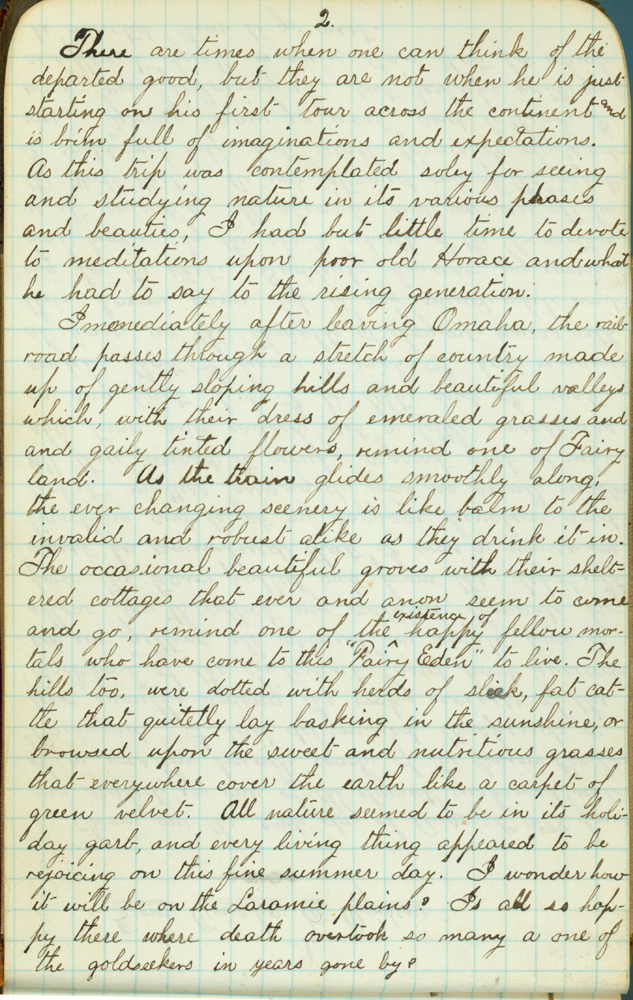 2.
There are times when one can think of the
departed good, but they are not when he is just
starting on his first tour across the continent and
is brim full of imaginations and expectations.
As this trip was contemplated soley for seeing
and studying nature in its various phases
and beauties, I had but little time to devote
to meditations upon poor old Horace and what
he had to say to the rising generation.
Immediately after leaving Omaha, the rail-
road passes through a stretch of country made
up of gently sloping hills and beautiful valleys
which, with their dress of emeraled grasses and
and gaily tinted flowers, remind one of Fairy
land. As the train glides smoothly along,
the ever changing scenery is like balm to the
invalid and robust alike as they drink it in.
The occasional beautiful groves with their shelt-
ered cottages that ever and anon seem to come
existence of
and go, remind one of the ^ happy fellow mor-
tals who have come to this "Fairy Eden" to live. The
hills too, were dotted with herds of sleek, fat cat-
tle that quitetly lay basking in the sunshine, or
browsed upon the sweet and nutritious grasses
that everywhere cover the earth like a carpet of
green velvet. All nature seemed to be in its holi-
day garb, and every living thing appeared to be
rejoicing on this fine summer day. I wonder how
it will be on the Laramie plains? Is all so hap-
py there where death overtook so many a one of
the goldseekers in years gone by?